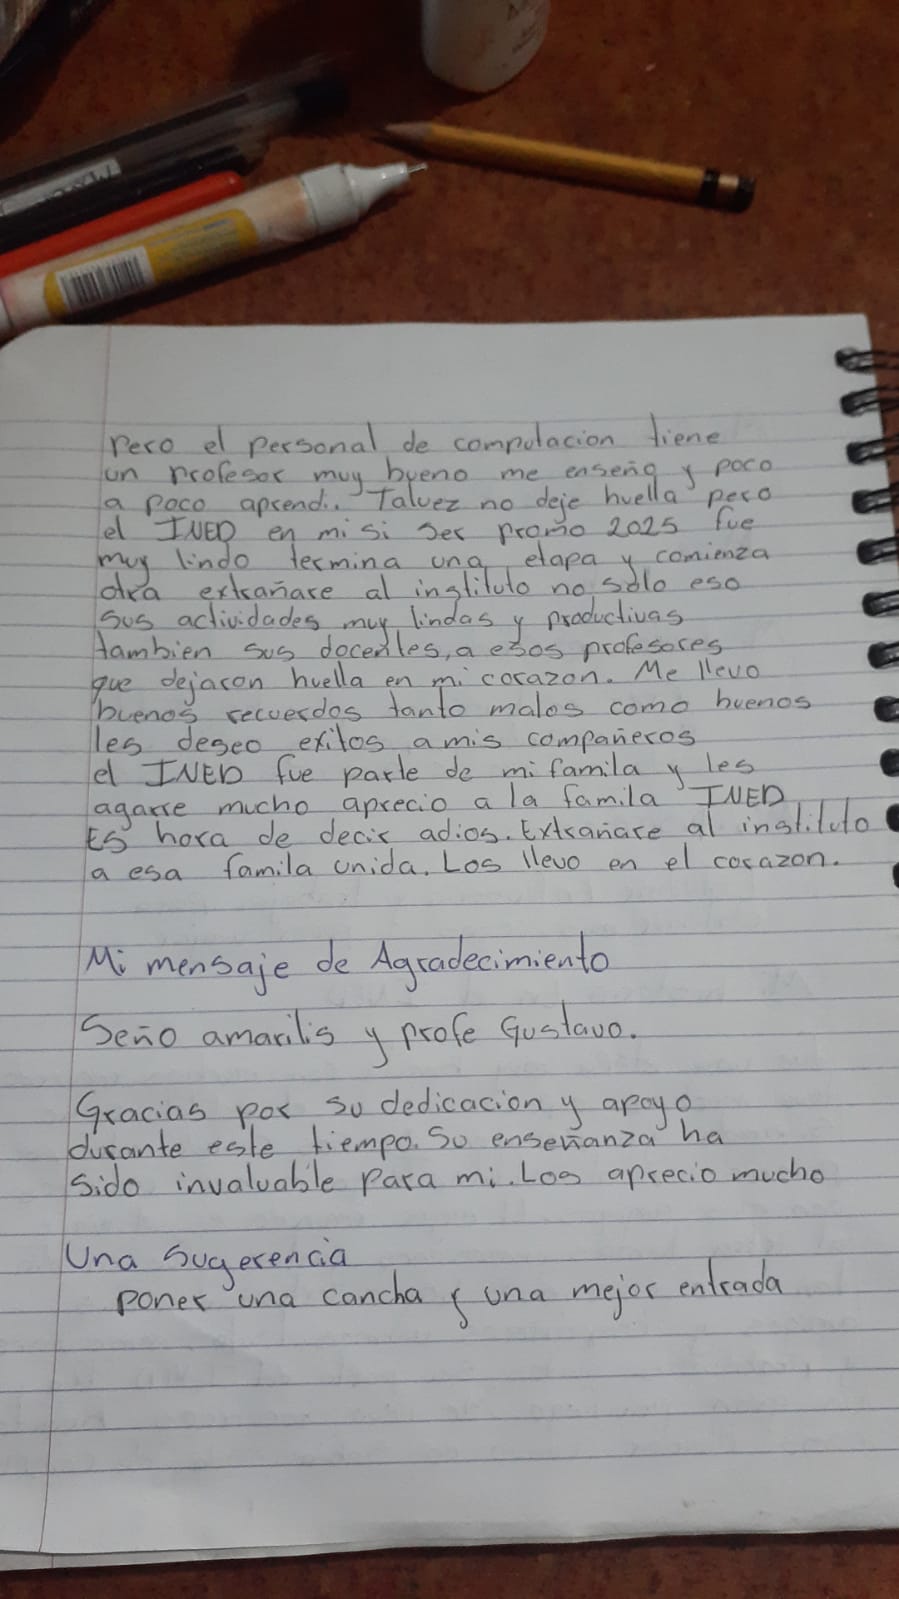 pero el personal de computacion tiene
un profesor muy bueno me enseño y poco
a poco aprendi. Talvez no deje huella pero
el INED en mi si ser promo 2025 fue
muy lindo termina una etapa y comienza
otra extrañare al instituto no solo eso
sus actividades muy lindas y productivas
tambien sus docentes, a esos profesores
que dejaron huella en mi corazon. Me llevo
buenos recuerdos tanto malos como buenos
les deseo exitos a mis compañeros
el INED fue parte de mi famila y les
agarre mucho aprecio a la famila INED
Es hora de decir adios. Extrañare al instituto
a esa famila unida. Los llevo en el corazon.
Mi mensaje de Agradecimiento
Seño amarilis y profe Gustavo.
Gracias por su dedicacion y apoyo
durante este tiempo. Su enseñanza ha
sido invaluable para mi. Los aprecio mucho
Una sugerencia
poner una cancha y una mejor entrada